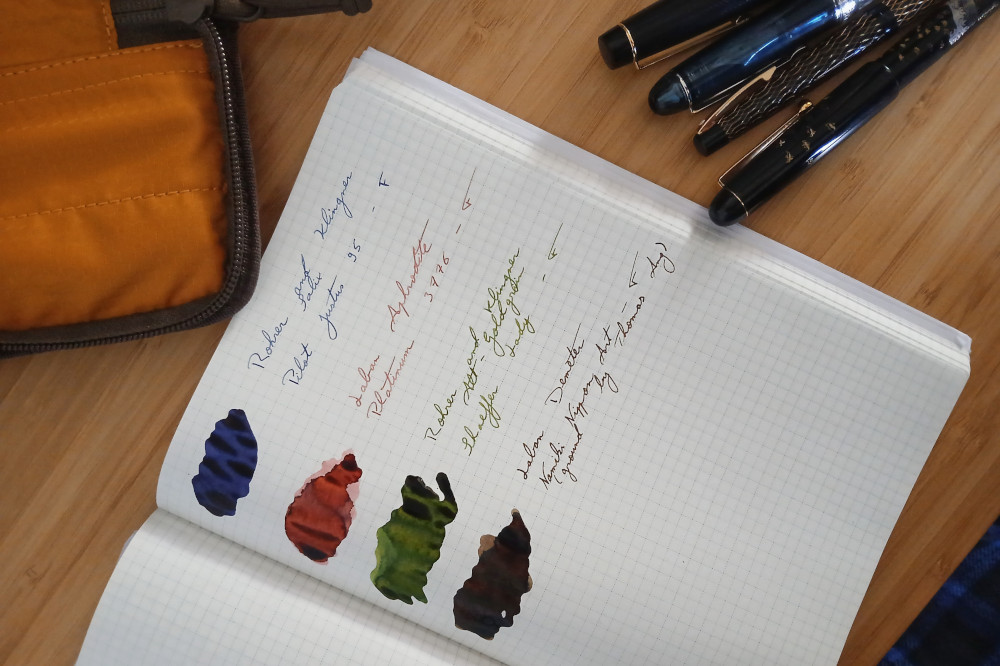 Rohrer and Klingner
Salix
Pilot Justus 95 - F
Laban Aphrodite
Platinum 3776 - F
Rohrer and Klingner
Alt-Goldgrün
Sheaffer Lady - F
Laban Demeter
Namiki Nippon Art - F
(ground by Thomas Ang)